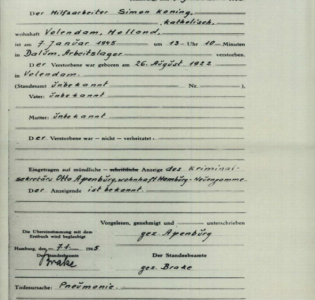 Der Hilfsarbeiter Simon Kening,
katholisch.
wohnhaft Volendam, Holland,
ist am 7 Januar 1945 um 13 Uhr 10 Minuten
in Dalüm, Arbeitslager verstorben.
Der Verstorbene war geboren am 26. August 1922
in Volendam
(Standesamt ünbekannt Nr. ).
Vater: ünbekannt
Mutter: ünbekannt
Der Verstorbene war — nicht — verheiratet
Eingetragen auf mündliche — schriftliche Anzeige des Kriminal-
sekretärs Otto Apenbürg, wohnhaft Hamburg-Neuengamme.
Der Anzeigende ist bekannt.
Vorgelesen, genehmigt und unterschrieben
Die Übereinstimmung mit dem
Erstbuch wird beglaubigt
gez. Apenbürg
Hamburg, den 7.1. 1945
Der Standesbeamte
Der Standesbeamte
Brake
gez. Brake
Todesursache: Pneumonie